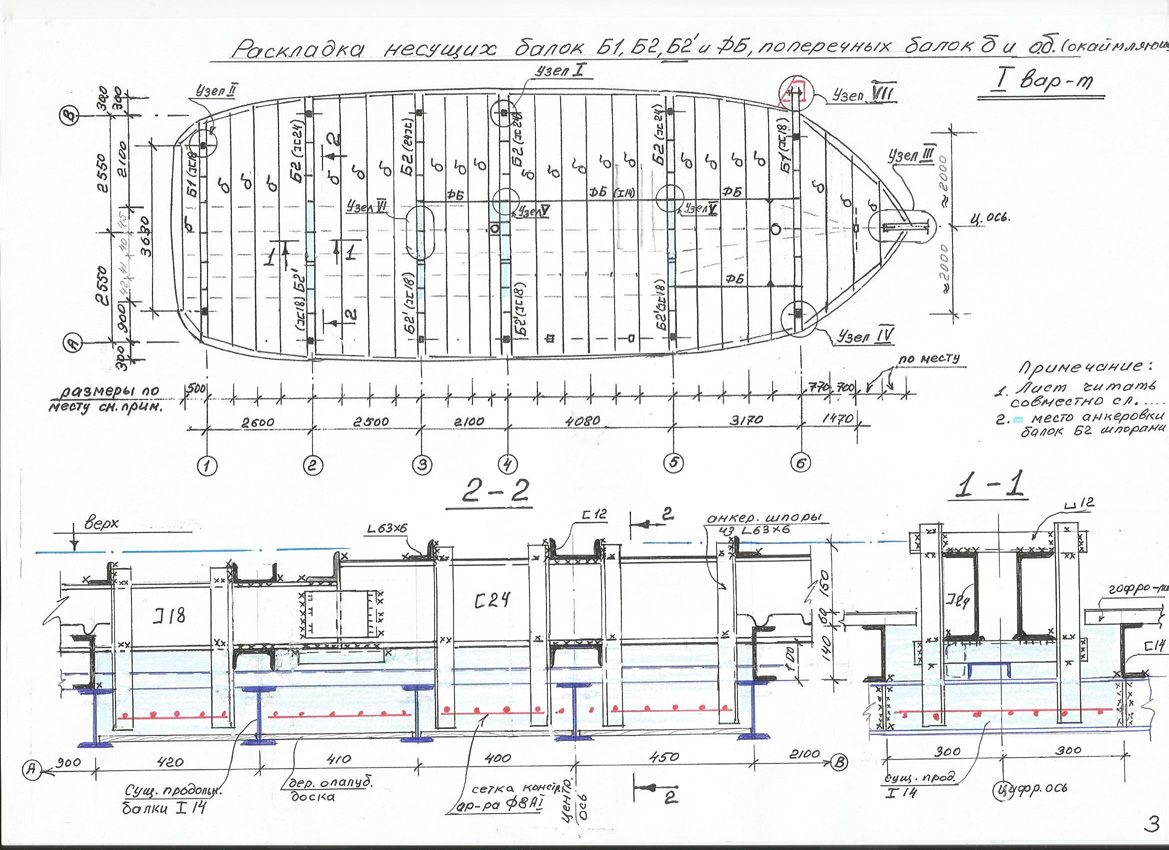 Раскладка несущих балок Б1, Б2, Б2' и ФБ, поперечных балок б и об. (окаймляющ
I вар-т
Узел II
Узел I
Узел VII
Узел III
Узел VI
Узел V
Узел V
Узел IV
В
А
300
300
2550
2100
2550
3630
900
300
45
40
41
42
Б1 (][18
Б2 (][24)
Б2 (24][)
Б2 (][24)
Б2 (][24)
Б1 (][18)
(][18) Б2'
Б2' (][18)
Б2' (][18)
Б2' (][18)
б б б б б б б б б б б б б б б б б
ФБ
ФБ (I14)
ФБ
ФБ
2
2
1
1
≈2000
≈2000
ц. ось.
размеры по
месту см. прим.
500
770
700
по месту
2600
2500
2100
4080
3170
1470
1
2
3
4
5
6
Примечание:
1. Лист читать
совместно с л. ....
2. место анкеровки
балок Б2 шпорами
2-2
верх
L63x6
[12
2
анкер. шпоры
из L63x6
]18
[24
160
60
140
100
А
900
420
410
400
450
2100
В
Сущ. продольн.
балки I 14
дер. опалуб.
доска
сетка констр.
ар-ра Ф8АI
Центр.
ось
2
1-1
12
][24
гофро-
[14
300
300
сущ. прод.
I 14
Цифр. ось
3